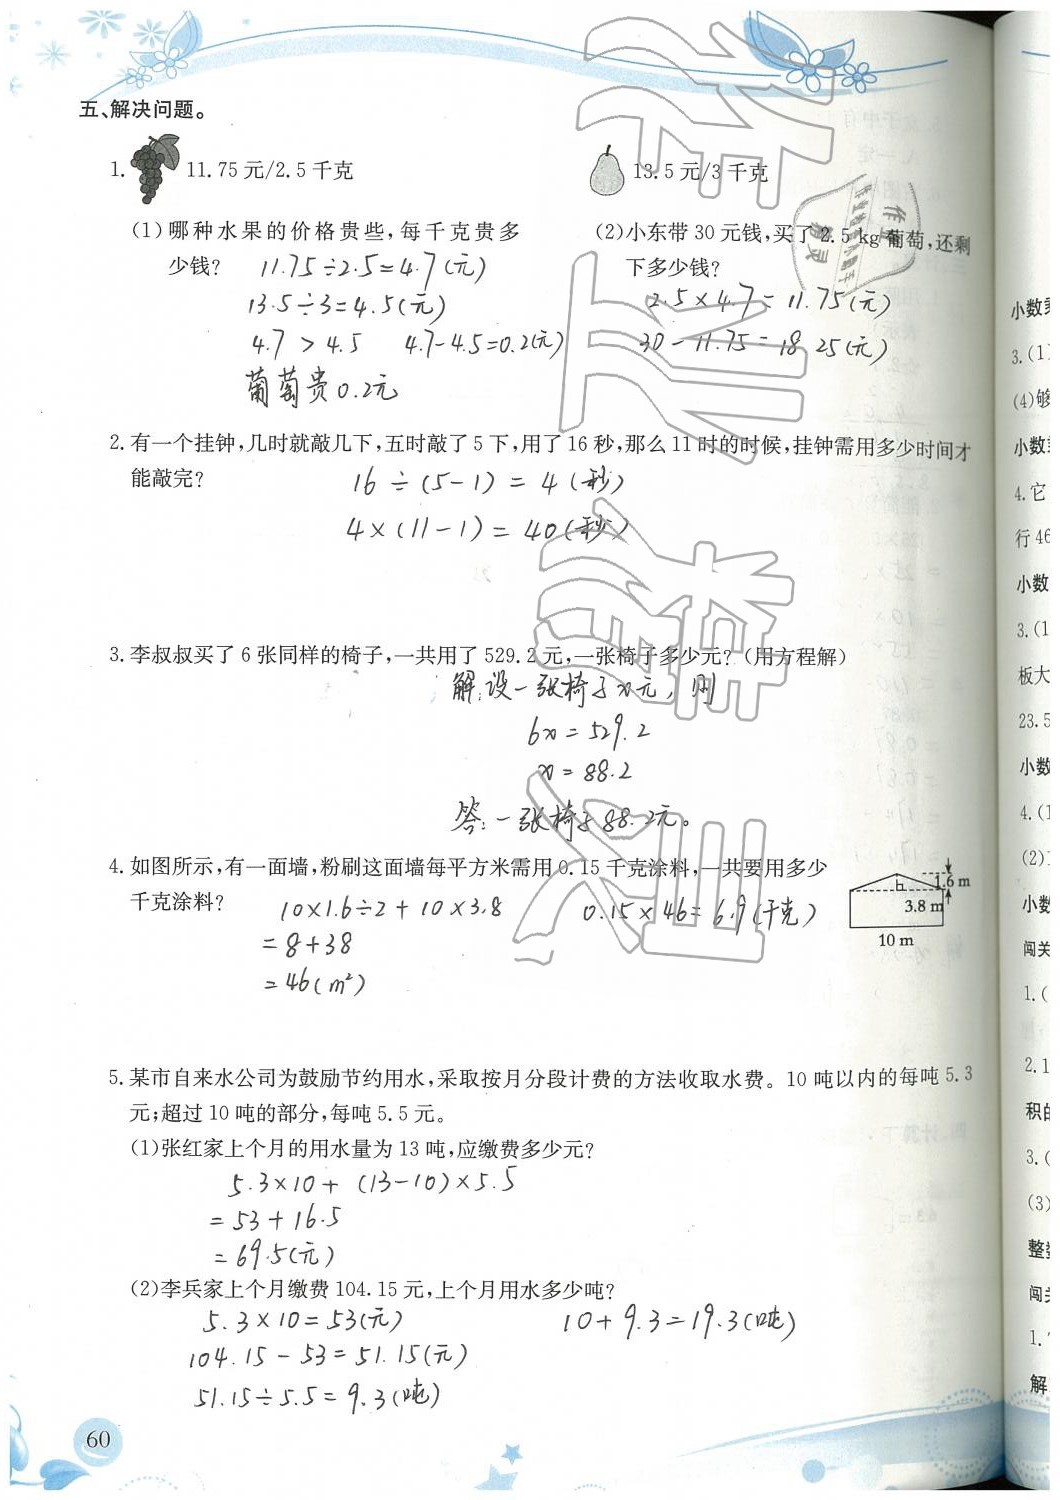 五、解决问题。
1. 11.75元/2.5千克
13.5元/3千克
(1)哪种水果的价格贵些,每千克贵多
少钱? 11.75÷2.5=4.7(元)
13.5÷3=4.5(元)
4.7>4.5 4.7-4.5=0.2(元)
葡萄贵0.2元
(2)小东带30元钱,买了2.5kg葡萄,还剩
下多少钱?
2.5×4.7=11.75(元)
30-11.75=18.25(元)
2.有一个挂钟,几时就敲几下,五时敲了5下,用了16秒,那么11时的时候,挂钟需用多少时间才
能敲完? 16÷(5-1)=4(秒)
4×(11-1)=40(秒)
3.李叔叔买了6张同样的椅子,一共用了529.2元,一张椅子多少元?(用方程解)
解:设一张椅子x元,则
6x=529.2
x=88.2
答:一张椅子88.2元。
4.如图所示,有一面墙,粉刷这面墙每平方米需用0.15千克涂料,一共要用多少
千克涂料? 10×1.6÷2+10×3.8 0.15×46=6.9(千克)
=8+38
=46(m²)
1.6 m
3.8 m
10 m
5.某市自来水公司为鼓励节约用水,采取按月分段计费的方法收取水费。10吨以内的每吨5.3
元;超过10吨的部分,每吨5.5元。
(1)张红家上个月的用水量为13吨,应缴费多少元?
5.3×10+(13-10)×5.5
=53+16.5
=69.5(元)
(2)李兵家上个月缴费104.15元,上个月用水多少吨?
5.3×10=53(元) 10+9.3=19.3(吨)
104.15-53=51.15(元)
51.15÷5.5=9.3(吨)
60
作业精灵
小数
3.(1)
(4)够
小数
4.它
行46
小数
3.(1
板大
23.5
小数
4.(1
(2)
小数
闯关
1.(
2.1
积的
3.(
(3)
整数
闯关
1.
解